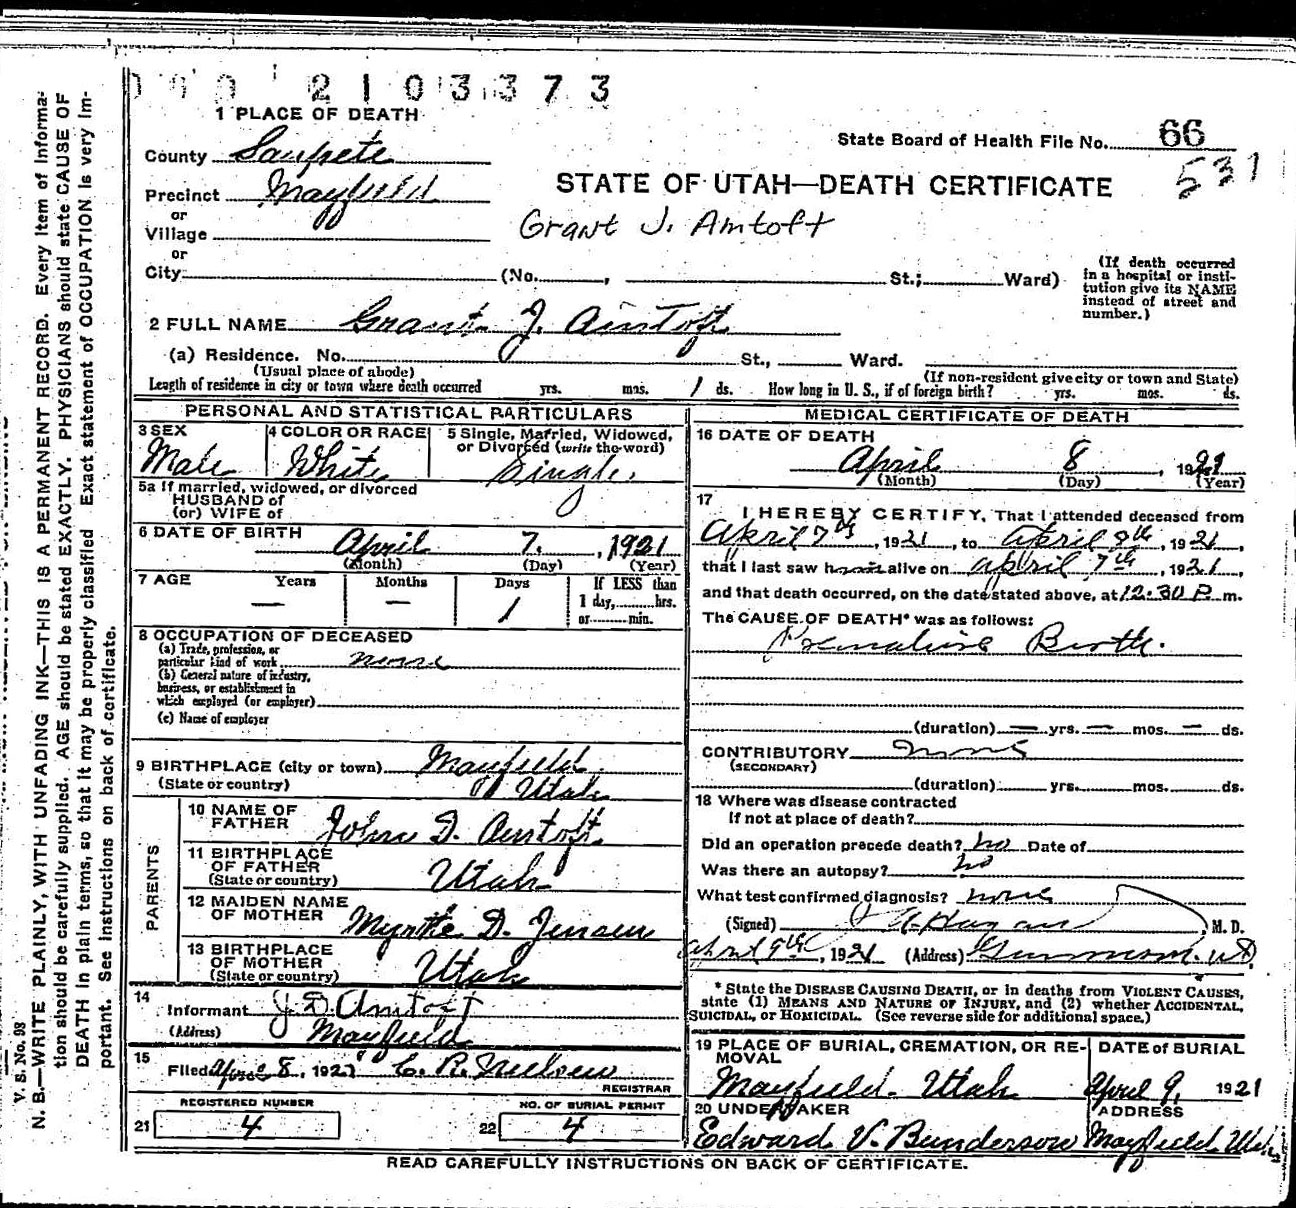 2103373
1 PLACE OF DEATH
State Board of Health File No. 66
531
County Sanpete
STATE OF UTAH—DEATH CERTIFICATE
Precinct Mayfield
or
Village
Grant J. Amtoft
or
City (No. , St.; Ward)
(If death occurred
in a hospital or insti-
tution give its NAME
instead of street and
number.)
2 FULL NAME Grant J. Amtoft
(a) Residence. No. St., Ward.
(Usual place of abode)
(If non-resident give city or town and State)
Length of residence in city or town where death occurred yrs. mos. 1 ds. How long in U. S., if of foreign birth? yrs. mos. ds.
PERSONAL AND STATISTICAL PARTICULARS
3 SEX
Male
4 COLOR OR RACE
White
5 Single, Married, Widowed,
or Divorced (write the word)
Single.
5a If married, widowed, or divorced
HUSBAND of
(or) WIFE of
6 DATE OF BIRTH April 7, 1921
(Month) (Day) (Year)
7 AGE Years Months Days If LESS than
— — 1 1 day, hrs.
or min.
8 OCCUPATION OF DECEASED
(a) Trade, profession, or
particular kind of work none
(b) General nature of industry,
business, or establishment in
which employed (or employer)
(c) Name of employer
9 BIRTHPLACE (city or town) Mayfield
(State or country) Utah
PARENTS
10 NAME OF
FATHER John D. Amtoft
11 BIRTHPLACE
OF FATHER
(State or country) Utah
12 MAIDEN NAME
OF MOTHER Myrtle D. Jensen
13 BIRTHPLACE
OF MOTHER
(State or country) Utah
14
Informant J. D. Amtoft
(Address) Mayfield
15
Filed April 8, 1921 C. R. Nielsen
REGISTRAR
REGISTERED NUMBER
21 4
NO. OF BURIAL PERMIT
22 4
MEDICAL CERTIFICATE OF DEATH
16 DATE OF DEATH
April 8, 1921
(Month) (Day) (Year)
17
I HEREBY CERTIFY, That I attended deceased from
April 7th, 1921, to April 8th, 1921,
that I last saw him alive on April 7th, 1921,
and that death occurred, on the date stated above, at 12:30 P m.
The CAUSE OF DEATH* was as follows:
Premature Birth.
(duration) — yrs. — mos. — ds.
CONTRIBUTORY none
(SECONDARY)
(duration) yrs. mos. ds.
18 Where was disease contracted
If not at place of death?
Did an operation precede death? no Date of
Was there an autopsy? no
What test confirmed diagnosis? none
(Signed) Hagan M. D.
April 9th, 1921 (Address) Gunnison. Ut
* State the DISEASE CAUSING DEATH, or in deaths from VIOLENT CAUSES,
state (1) MEANS AND NATURE OF INJURY, and (2) whether ACCIDENTAL,
SUICIDAL, or HOMICIDAL. (See reverse side for additional space.)
19 PLACE OF BURIAL, CREMATION, OR RE-
MOVAL
Mayfield. Utah
DATE of BURIAL
April 9, 1921
20 UNDERTAKER
Edward V. Bunderson
ADDRESS
Mayfield Utah
READ CAREFULLY INSTRUCTIONS ON BACK OF CERTIFICATE.
V. S. No. 98
N. B.—WRITE PLAINLY, WITH UNFADING INK—THIS IS A PERMANENT RECORD. Every item of informa-
tion should be carefully supplied. AGE should be stated EXACTLY. PHYSICIANS should state CAUSE OF
DEATH in plain terms, so that it may be properly classified Exact statement of OCCUPATION is very im-
portant. See instructions on back of certificate.